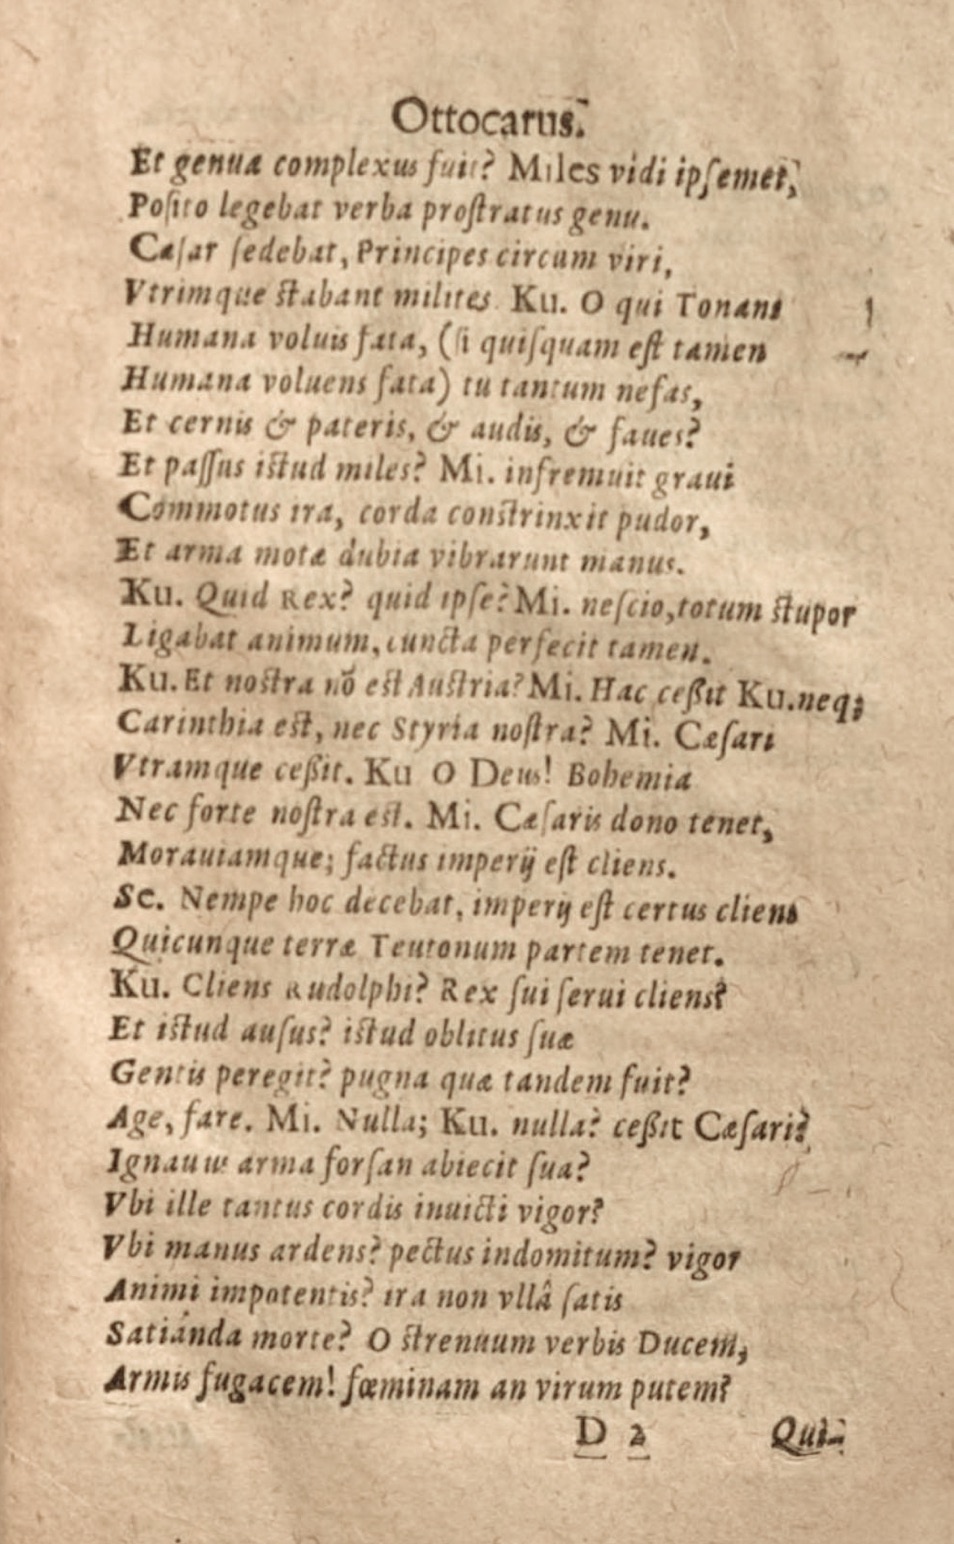 Ottocarus.
Et genua complexus fuit? Miles vidi ipſemet,
Poſito legebat verba proſtratus genu.
Cæſar ſedebat, Principes circum viri,
Vtrimque ſtabant milites Ku. O qui Tonans
Humana voluis fata, (ſi quiſquam eſt tamen
Humana voluens fata) tu tantum nefas,
Et cernis & pateris, & audis, & faues?
Et paſſus iſtud miles? Mi. infremuit graui
Commotus ira, corda conſtrinxit pudor,
Et arma motæ dubia vibrarunt manus.
Ku. Quid Rex? quid ipſe? Mi. neſcio, totum ſtupor
Ligabat animum, cuncta perfecit tamen.
Ku. Et noſtra nō eſt Auſtria? Mi. Hac ceßit Ku. neq;
Carinthia eſt, nec Styria noſtra? Mi. Cæſari
Vtramque ceßit. Ku O Deus! Bohemia
Nec forte noſtra eſt. Mi. Cæſaris dono tenet,
Morauiamque; factus imperij eſt cliens.
Sc. Nempe hoc decebat, imperij eſt certus cliens
Quicunque terræ Teutonum partem tenet.
Ku. Cliens Rudolphi? Rex ſui ſerui cliens?
Et iſtud auſus? iſtud oblitus ſuæ
Gentis peregit? pugna quæ tandem fuit?
Age, fare. Mi. Nulla; Ku. nulla? ceßit Cæſari?
Ignauus arma forſan abiecit ſua?
Vbi ille tantus cordis inuicti vigor?
Vbi manus ardens? pectus indomitum? vigor
Animi impotentis? ira non vllâ ſatis
Satianda morte? O ſtrenuum verbis Ducem,
Armis fugacem! fœminam an virum putem?
D 2 Qui-